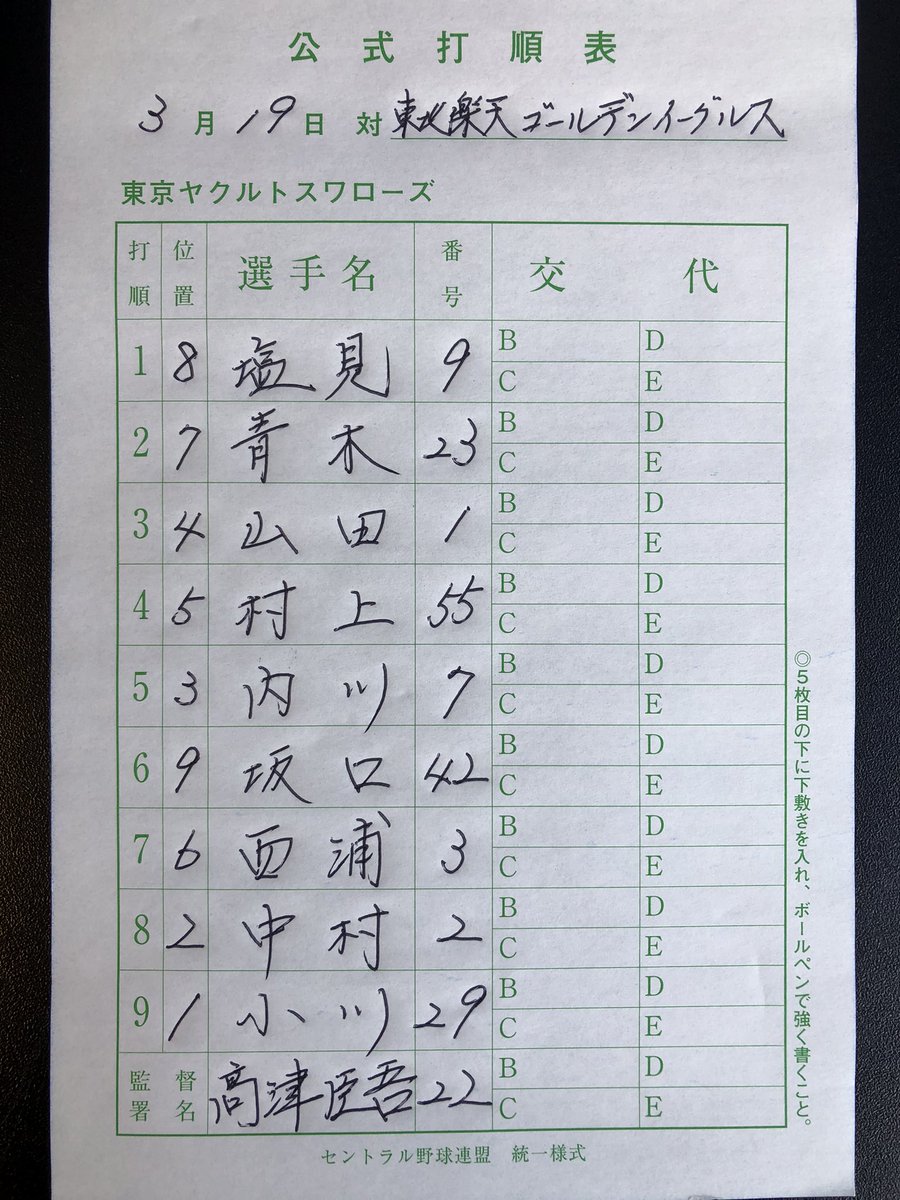 公式打順表
3月19日 対 東北楽天ゴールデンイーグルス
東京ヤクルトスワローズ
打順 位置 選手名 番号 交代
1 8 塩見 9 B D
C E
2 7 青木 23 B D
C E
3 4 山田 1 B D
C E
4 5 村上 55 B D
C E
5 3 内川 7 B D
C E
6 9 坂口 42 B D
C E
7 6 西浦 3 B D
C E
8 2 中村 2 B D
C E
9 1 小川 29 B D
C E
監督署名 高津臣吾 22 B D
C E
◎5枚目の下に下敷きを入れ、ボールペンで強く書くこと。
セントラル野球連盟 統一様式